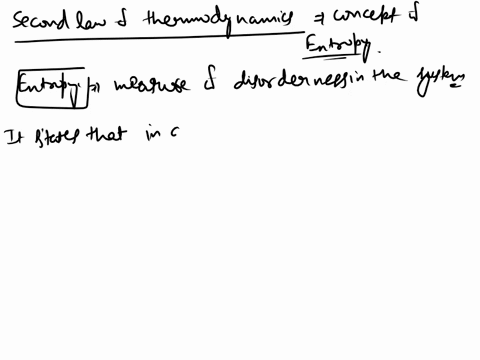 second law of thermodynamics ⇒ concept of
Entropy.
Entropy ⇒ measure of disorderness in the system
It states that in c